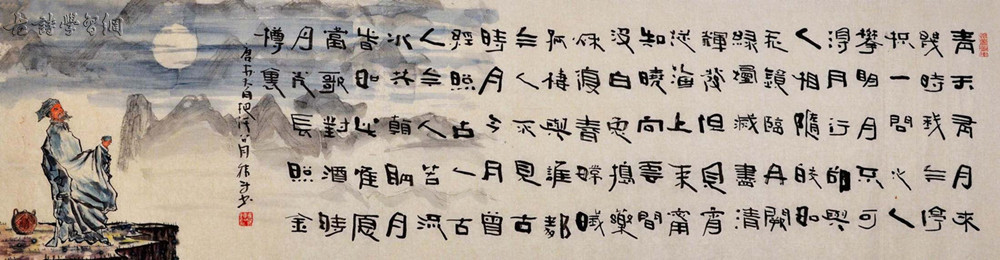 青天有月来
幾時我今停
杯一問之人
攀明月不可
得月行卻與
人相隨皎如
飛鏡臨丹闕
緑煙滅盡清
輝發但見宵
從海上來甯
知曉向雲間
没白兔搗藥
秋復春嫦娥
孤棲與誰鄰
今人不見古
時月今月曾
經照古人古
人今人若流
水共朝明月
皆如此唯愿
當歌對酒時
月光長照金
樽裏
唐李白把酒问月
詩學習網